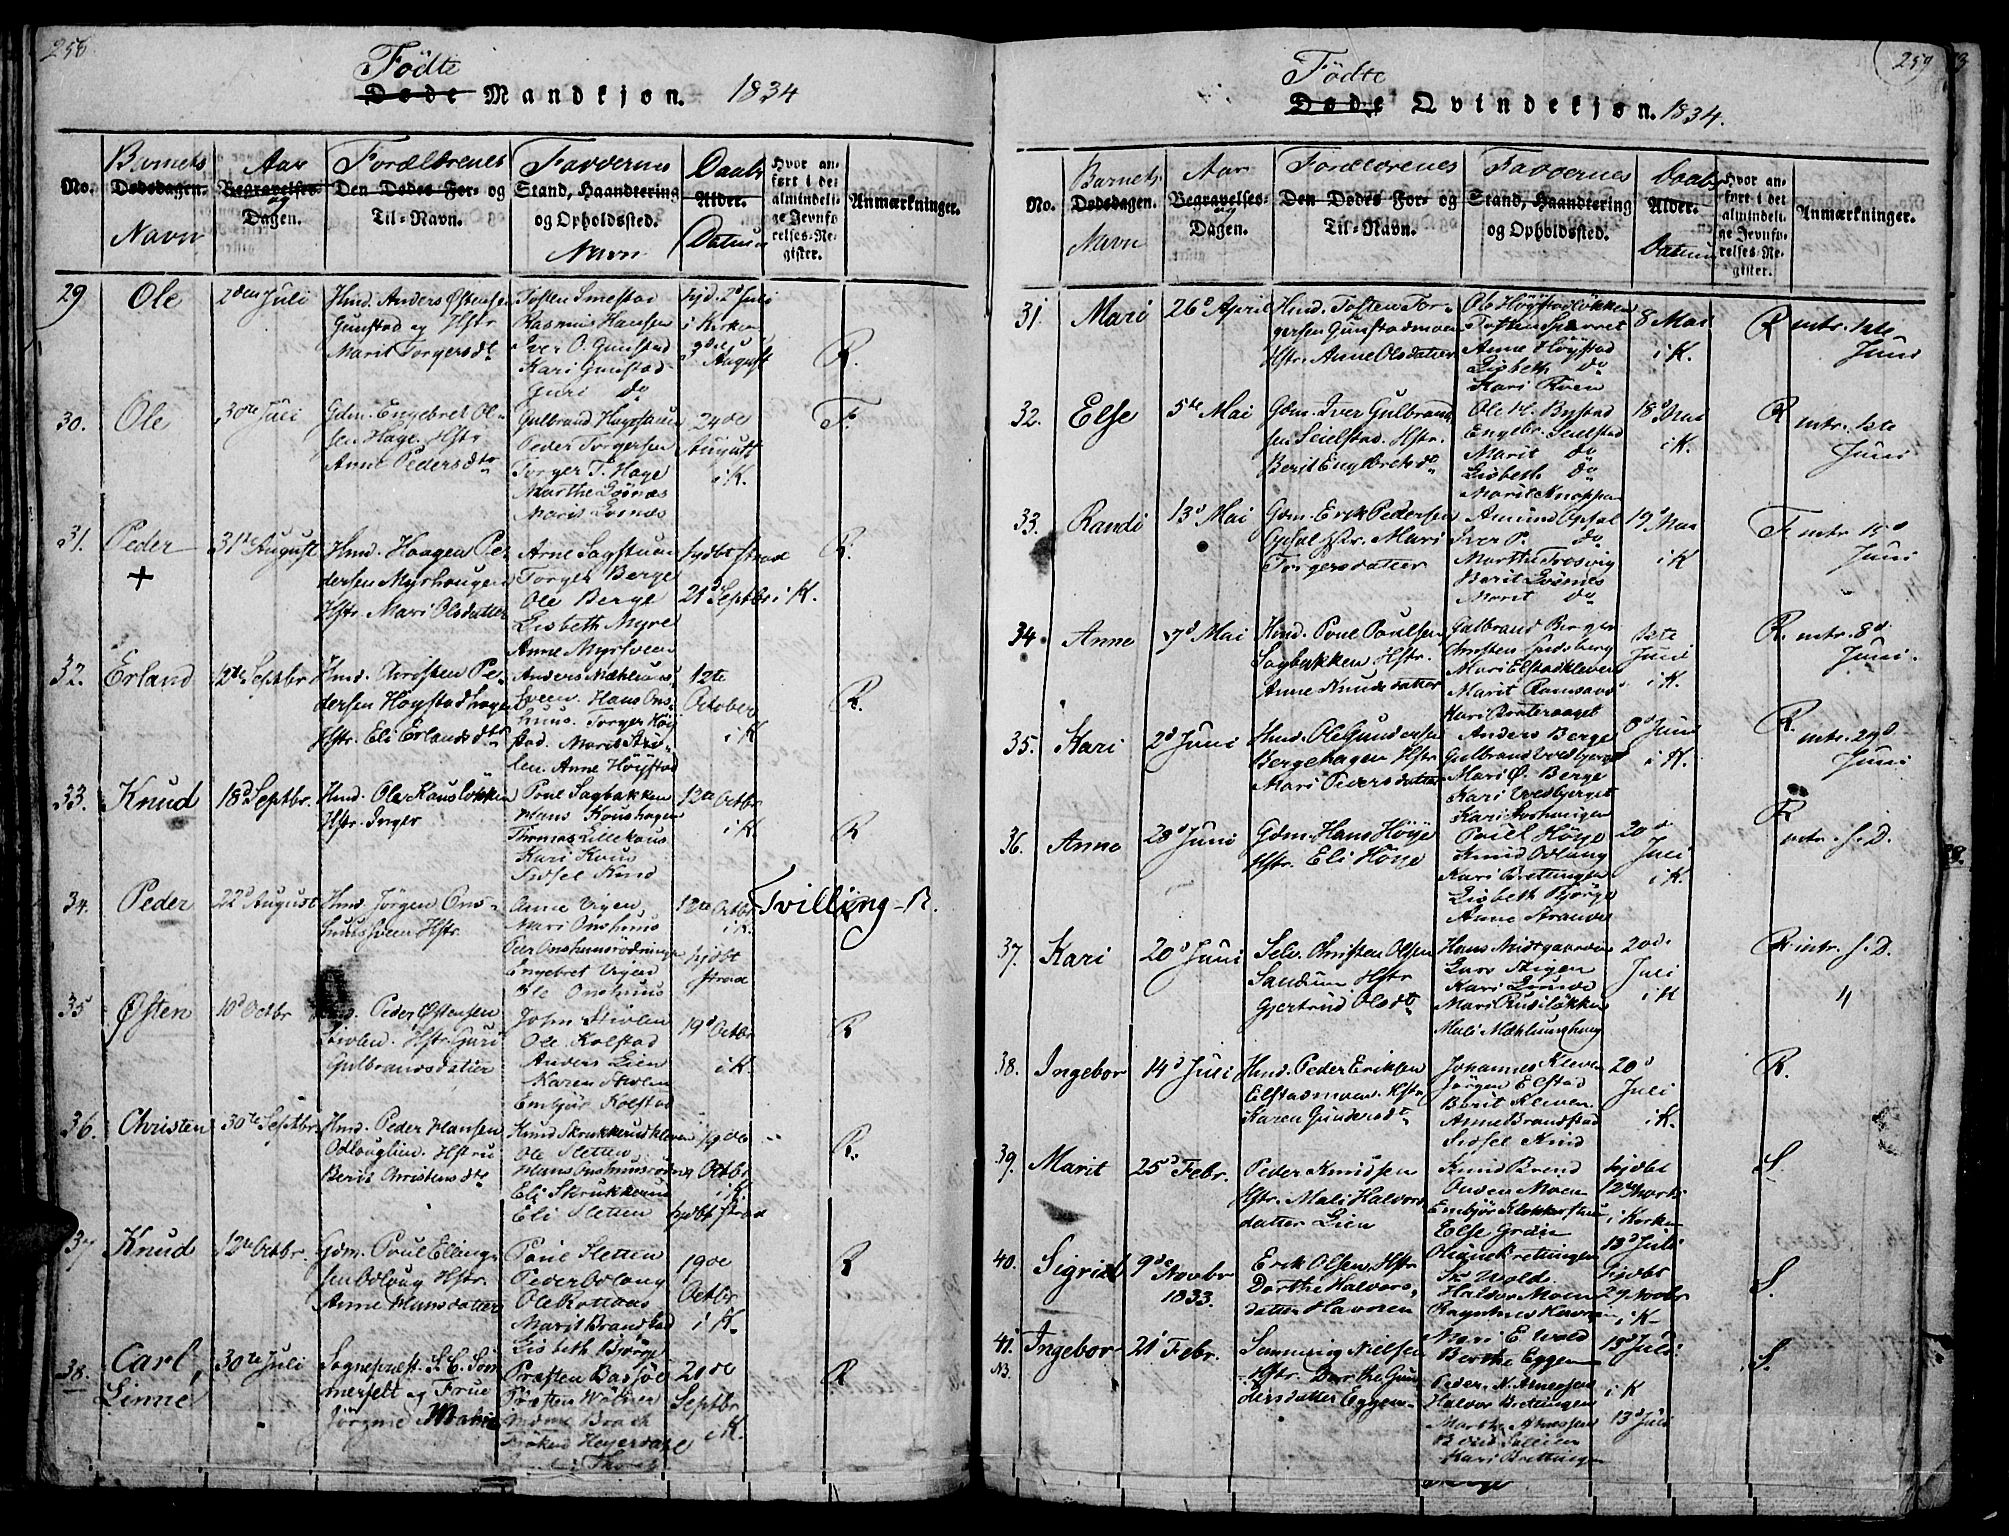 258
Födte
Døde Mandkjøn. 1834
No.
Barnets
Dødsdagen.
Navn
Aar
Begravelses-
og
Dagen.
Forældrenes
Den Dødes For- og
Til-Navn.
Faddernes
Stand, Haandtering
og Opholdssted.
Navn
Daabs
Alder.
Datum
Hvor an-
ført i det
almindeli-
ge Jevnfø-
relses-Re-
gister.
Anmærkninger.
29 Ole 2den Juli
Hmd. Anders Østensen
Gunstad og Hstr
Marit Torgersdt
Tosten Smestad
Rasmus Hansen
Iver O. Gunstad
Kari Gunstad
Guri do
hjd. 2d Juli
i Kirken
3die August
R.
30. Ole 30te Juli
Gdm. Engebret Ol-
sen Hage Hstr
Anne Pedersdtr
Gulbrand Hagestuen
Peder Torgersen
Torger T. Hage
Marthe Losnæs
Maris Losnæs
24de
August
i K.
F.
31. Peder 31te August
+
Hmd. Haagen Pe-
dersen Myrhougen
Hstr. Mari Olsdatter
Arne Sagstuen
Torger Berge
Ole Berge
Lisbeth Myre
Anne Myrsveen
hjdbt strax
21d Septbr i K.
R.
32. Erland 12te Septbr
Hmd. Christen Pe-
dersen Høystadhagen
Hstr. Eli Erlandsdtr
Anders Mæhlums-
sveen. Hans Ons-
huus. Torger Høy-
stad. Marit
Anne Høystad
12te
October
i K
R.
33. Knud 18d Septbr.
Hmd. Ole Rausløkken
Hstr. Inger
Poul Sagbakken
Hans Koushagen
Thomas Lillehaus
Kari Knud
Sidsel Kind
12te Octbr
i K.
R
34. Peder 22d August
Hmd. Jörgen Ons-
huussveen Hstr.
Anne Vigen
Mari Onshuus
Peder Onshuusrödningen
Engebret Vigen
Ole Onshuus
12te Octbr
i K.
hjdbt
strax
Tvilling - R.
35 Østen 10d Octbr
Peder Østensen
Hstr. Guri
Gulbrandsdatter
John Stivlen
Ole Kolstad
Anders Lien
Karen Stivlen
Embjør Kolstad
19d Octbr
i K
R
36. Christen 30te Septbr
Hmd. Peder Hansen
Odlouglien. Hstru
Berit Christensdtr
Knud Skrukkerudkleven
Ole Sletten
Hans Onshuusrødn.
Eli Skrukkerud
Eli Sletten
19de
Octbr
i K
hjdbt strax
R.
37 Knud 12te Octbr.
Gdm. Poul Elling-
sen Odloug Hstr.
Anne Hansdatter
Poul Sletten
Peder Odloug
Ole Rottaas
Marit Brandstad
Lisbeth Bjørge
19de
Octbr
i K.
R
38. Carl
Linne
30te Juli
Sogneprest. S. C. Som-
merfelt og Frue
Jörgine Marie
Præsten Bassøe
Præsten Wølner
Mdme Brock
Frøken Heyerdahl
21de
Septbr
i K.
R
259
Födte
Døde Qvindekjøn. 1834.
No.
Barnets
Dødsdagen.
Navn
Aar
Begravelses-
og
Dagen.
Forældrenes
Den Dødes For- og
Til-Navn.
Faddernes
Stand, Haandtering
og Opholdssted.
Daabs
Alder.
Datum
Hvor an-
ført i det
almindeli-
ge Jevnfø-
relses-Re-
gister.
Anmærkninger.
31. Mari 26d April
Hmd. Tosten Tor-
gersen Gunstadmoen
Hstr. Anne Olsdatter
Ole Høystadløkken
Tosten Sparvet
Anne Høystad
Lisbeth do
Kari Kven
8 Mai
i K.
R intr. 1ste
Juni
32. Else 5te Mai
Gdm. Iver Gulbrand-
sen Seielstad. Hstr.
Berit Engebretsdt
Ole H. Bystad
Engebr. Seielstad
Marit do
Lisbeth do
Marit Knappen
18d Mai
i K.
R intr. 1ste
Juni
33. Randi 13d Mai
Gdm. Erik Pedersen
Opsal Hstr. Mari
Torgersdatter
Amund Opsal
Iver P. do
Marthe Trosvig
Berit Losnes
Marit do
19d Mai
i K
F intr. 15d
Juni
34. Anne 7d Mai
Hmd. Poul Poulsen
Sagbakken Hstr.
Anne Knudsdatter
Gulbrand Berger
Christen Lundsberg
Mari Elstadkleven
Marit Ramsaas
Kari Brateraaget
1ste
Juni
i K.
R. intr. 8d.
Juni.
35. Kari 2d Juni
Hmd. Ole Gundersen
Bergehagen Hstr
Mari Pedersdatter
Anders Berge
Gulbrand Vedbjerget
Mari Ø. Berge
Kari Vedbjerget
Kari
8d Juni
i K.
R. intr. 29d
Juni
36. Anne 28d Juni
Gdm. Hans Höye
Hstr. Eli Höye
Poul Höye
Knud Odloug
Kari Brettingen
Lisbeth Bjørge
Anne Strande
20d
Juli
i K.
R intr. s. D.
37. Kari 20d Juni
Selv. Christen Olsen
Sandum Hstr
Gjertrud Olsdt
Hans Midtgaarden
Lars Stigen
Kari Lunde
Mari Rudsløkken
Mali Mæhlumshaug
20d.
Juli
i K
R intr. s. D.
4
38. Ingebor 14d Juli
Hmd. Peder Eriksen
Elstadmoen. Hstr
Karen Gundersdt
Johannes Kleven
Jörgen Elstad
Berit Kleven
Anne Brandstad
Sidsel Kind
20d
Juli
i K.
R.
39. Marit 25d Febr.
Peder Knudsen
Hstr. Mali Halvors-
datter Lien
Knud Brend
Ouden Moen
Embjør Klokkerstuen
Else Gran
hjdbt
12te Marts
i Kirken
13d Juli
S.
40. Sigrid 9de Novbr
1833.
Erik Olsen. Hstr
Dorthe Halvors-
datter Havnen
Ole Brettingen
Sr Wold
Halvor Moen
Ragnhild Havnen
hjdbt
29 Novbr
i K
S.
41. Ingebor 21d Febr.
NB.
Semming Nielsen
Hstr. Dorthe Gun-
dersdatter Eggen
Mari E. Wold
Berthe Eggen
Peder N. Arnessen
Halvor Brettingen
Marthe Arnessen
Kari Brettingen
13d Juli
i K
13d Juli
S.